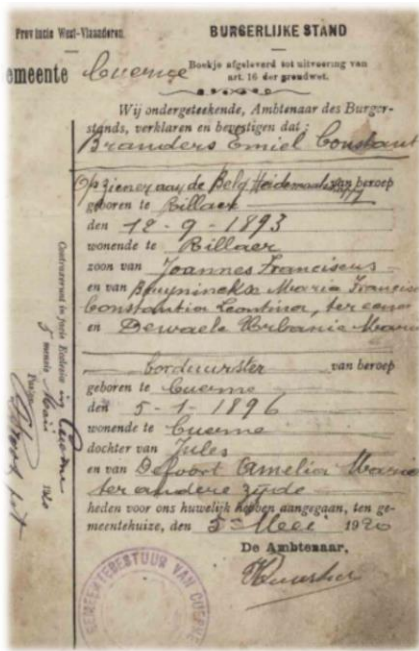 Provincie West-Vlaanderen.
BURGERLIJKE STAND
emeente Cuerne
Boekje afgeleverd tot uitvoering van
art. 16 der grondwet.
Wij ondergeteekende, Ambtenaar des Burger-
stands, verklaren en bevestigen dat :
Branders Emiel Constant
Opziener aan de Belg. van beroep
geboren te Billaer
den 12-9-1893
wonende te Billaer
zoon van Joannes Franciscus
en van Bruyninckx Maria Francisc
Constantia Leontina, ter eener
en Dewaele Urbanie Maria
Borduurster van beroep
geboren te Cuerne
den 5-1-1896
wonende te Cuerne
dochter van Jules
en van Defoort Amelia Maria
ter andere zijde
heden voor ons huwelijk hebben aangegaan, ten ge-
meentehuize, den 5n Meei 1920
De Ambtenaar,
Contraxerunt in facie Ecclesiæ in Cuerne
5 mensis Maii 1920
GEMEENTEBESTUUR VAN CUERNE